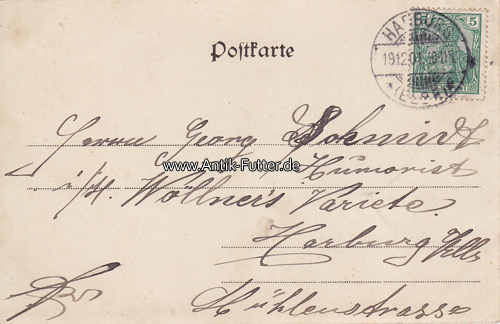 HARBURG
5
19.12.01
* (ELBE)
Postkarte
Herrn Georg Schmidt
www.Antik-Futter.de
Humorist
Wöllner's Variete
Harburg
Mühlenstrasse